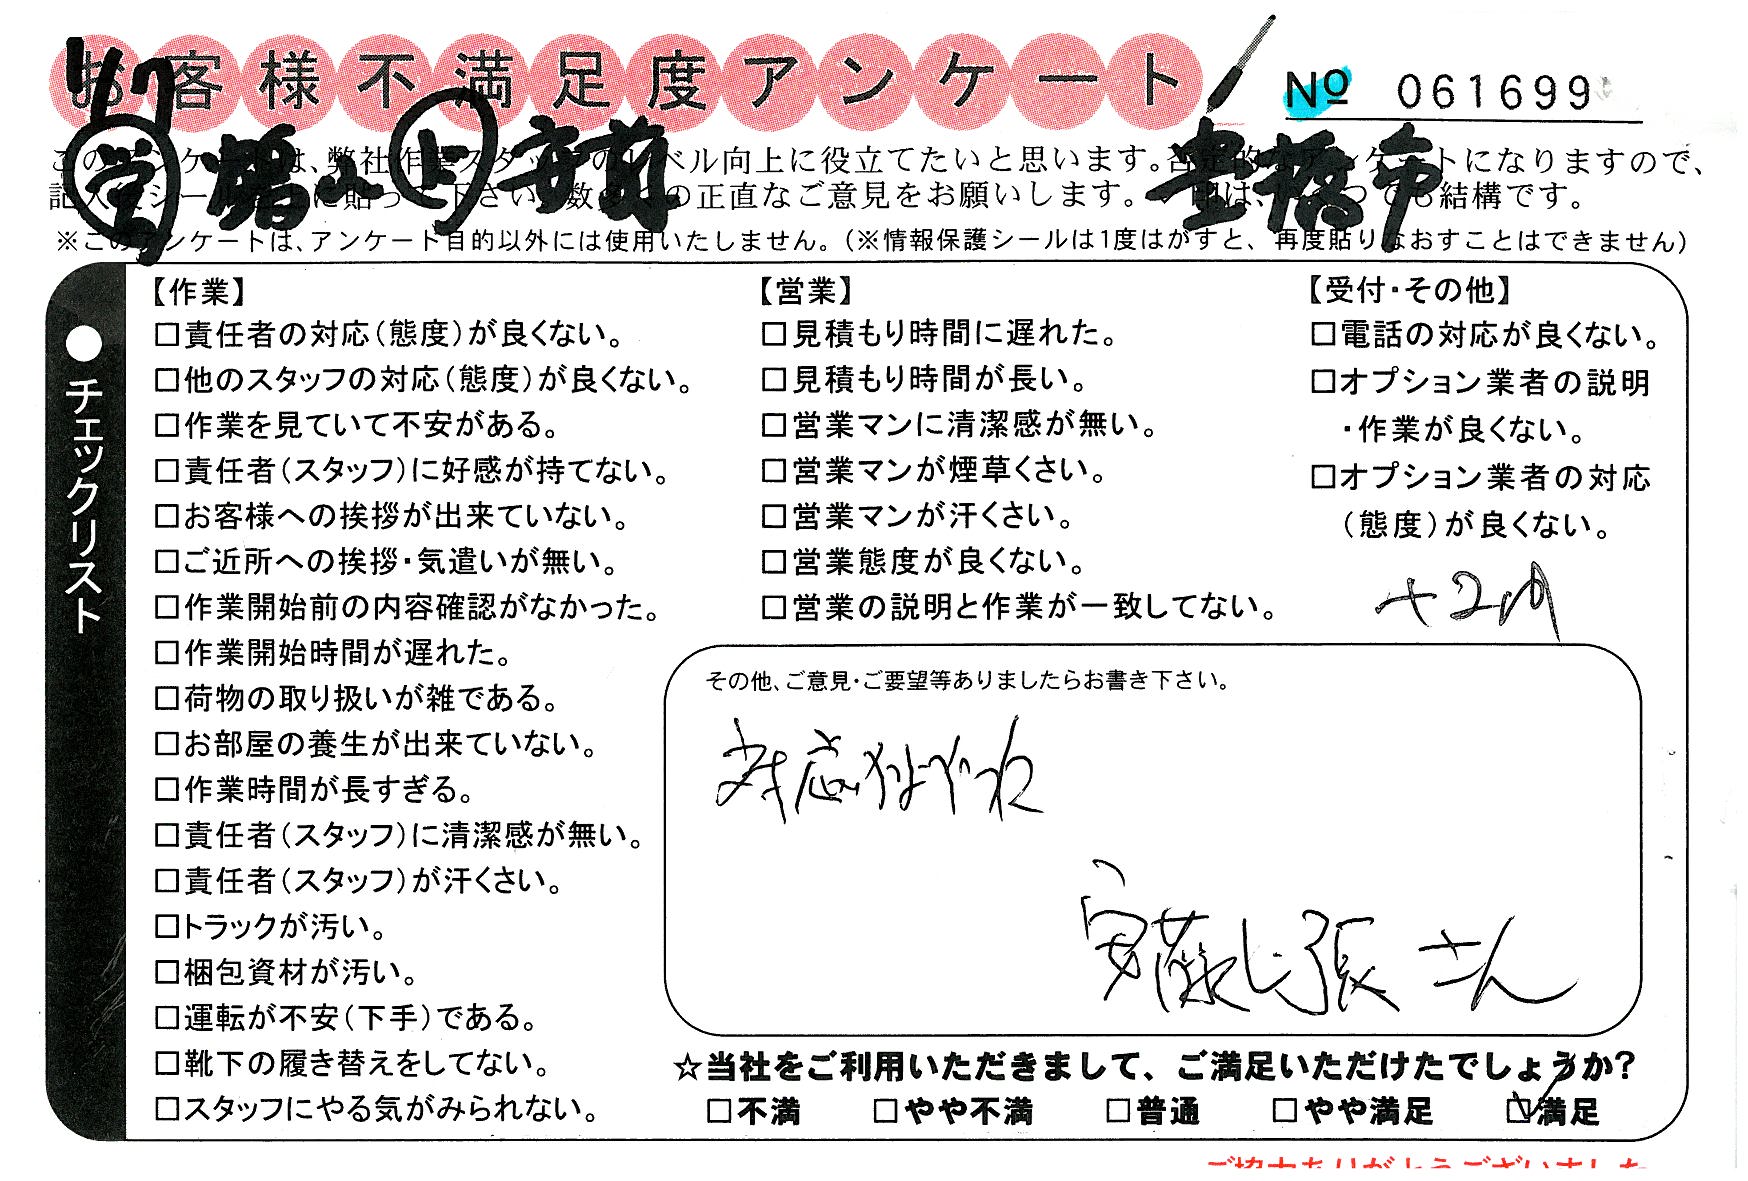 お客様不満足度アンケート
№ 061699
7/7
営 ト 安藤
豊橋市
このアンケートは、弊社作業スタッフのレベル向上に役立てたいと思います。否定的なアンケートになりますので、
記入後シールを上に貼って下さい。数多くの正直なご意見をお願いします。 印は、いくつでも結構です。
※このアンケートは、アンケート目的以外には使用いたしません。(※情報保護シールは1度はがすと、再度貼りなおすことはできません)
●チェックリスト
【作業】
□責任者の対応(態度)が良くない。
□他のスタッフの対応(態度)が良くない。
□作業を見ていて不安がある。
□責任者(スタッフ)に好感が持てない。
□お客様への挨拶が出来ていない。
□ご近所への挨拶・気遣いが無い。
□作業開始前の内容確認がなかった。
□作業開始時間が遅れた。
□荷物の取り扱いが雑である。
□お部屋の養生が出来ていない。
□作業時間が長すぎる。
□責任者(スタッフ)に清潔感が無い。
□責任者(スタッフ)が汗くさい。
□トラックが汚い。
□梱包資材が汚い。
□運転が不安(下手)である。
□靴下の履き替えをしてない。
□スタッフにやる気がみられない。
【営業】
□見積もり時間に遅れた。
□見積もり時間が長い。
□営業マンに清潔感が無い。
□営業マンが煙草くさい。
□営業マンが汗くさい。
□営業態度が良くない。
□営業の説明と作業が一致してない。
【受付・その他】
□電話の対応が良くない。
□オプション業者の説明
・作業が良くない。
□オプション業者の対応
(態度)が良くない。
その他、ご意見・ご要望等ありましたらお書き下さい。
対応
安藤 さん
☆当社をご利用いただきまして、ご満足いただけたでしょうか?
□不満 □やや不満 □普通 □やや満足 ☑満足
ご協力ありがとうございました